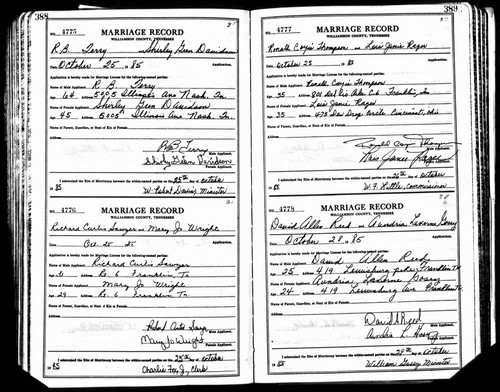 388
No. 4775
MARRIAGE RECORD
WILLIAMSON COUNTY, TENNESSEE
R.B. Terry and Shirley Gean Davidson
October 25 - 85 Application.
Application is hereby made for Marriage License for the following-named parties:
Name of Male Applicant. R B Terry
Age 64 Res. 5005 Illinois Ave Nash. Tn
Name of Female Applicant. Shirley Gean Davidson
Age 45 Res. 5005 Illinois Ave Nash. Tn
Name of Parent, Guardian, or Next of Kin of Female.
R B Terry
Male Applicant.
Shirley Gean Davidson
Female Applicant.
I solemnized the Rite of Matrimony between the within-named parties on the 25th day of October
1985
Minister
No. 4776
MARRIAGE RECORD
WILLIAMSON COUNTY, TENNESSEE
Richard Curtis Sawyer and Mary Jo Wright
Oct 25 Application.
Application is hereby made for Marriage License for the following-named parties:
Name of Male Applicant. Richard Curtis Sawyer
Age Res. Rt. 6 Franklin, Tn
Name of Female Applicant. Mary Jo Wright
Age 29 Res. Rt. 6 Franklin, Tn
Name of Parent, Guardian, or Next of Kin of Female.
Male Applicant.
Mary Jo Wright
Female Applicant.
I solemnized the Rite of Matrimony between the within-named parties on the 25th day of October
1985
Charlie Fox Jr, Clerk
389
No. 4777
MARRIAGE RECORD
WILLIAMSON COUNTY, TENNESSEE
Ronald Thompson and Lois Janie
October 25 1985 Application.
Application is hereby made for Marriage License for the following-named parties:
Name of Male Applicant. Ronald Thompson
Age 35 Res. 801 Del Rio Franklin, Tn
Name of Female Applicant. Lois Janie
Age 35 Res. Circle Cincinnati, Ohio
Name of Parent, Guardian, or Next of Kin of Female.
Male Applicant.
Female Applicant.
I solemnized the Rite of Matrimony between the within-named parties on the 26th day of October
1985
W.F. Commissioner
No. 4778
MARRIAGE RECORD
WILLIAMSON COUNTY, TENNESSEE
David Allen Reed and
October 28 1985 Application.
Application is hereby made for Marriage License for the following-named parties:
Name of Male Applicant. David Allen Reed
Age 25 Res. 419 Lewisburg Pike Franklin Tn
Name of Female Applicant.
Age 24 Res. 419 Lewisburg Ave Franklin Tn
Name of Parent, Guardian, or Next of Kin of Female.
David A Reed
Male Applicant.
Female Applicant.
I solemnized the Rite of Matrimony between the within-named parties on the 28th day of October
1985
William Minister